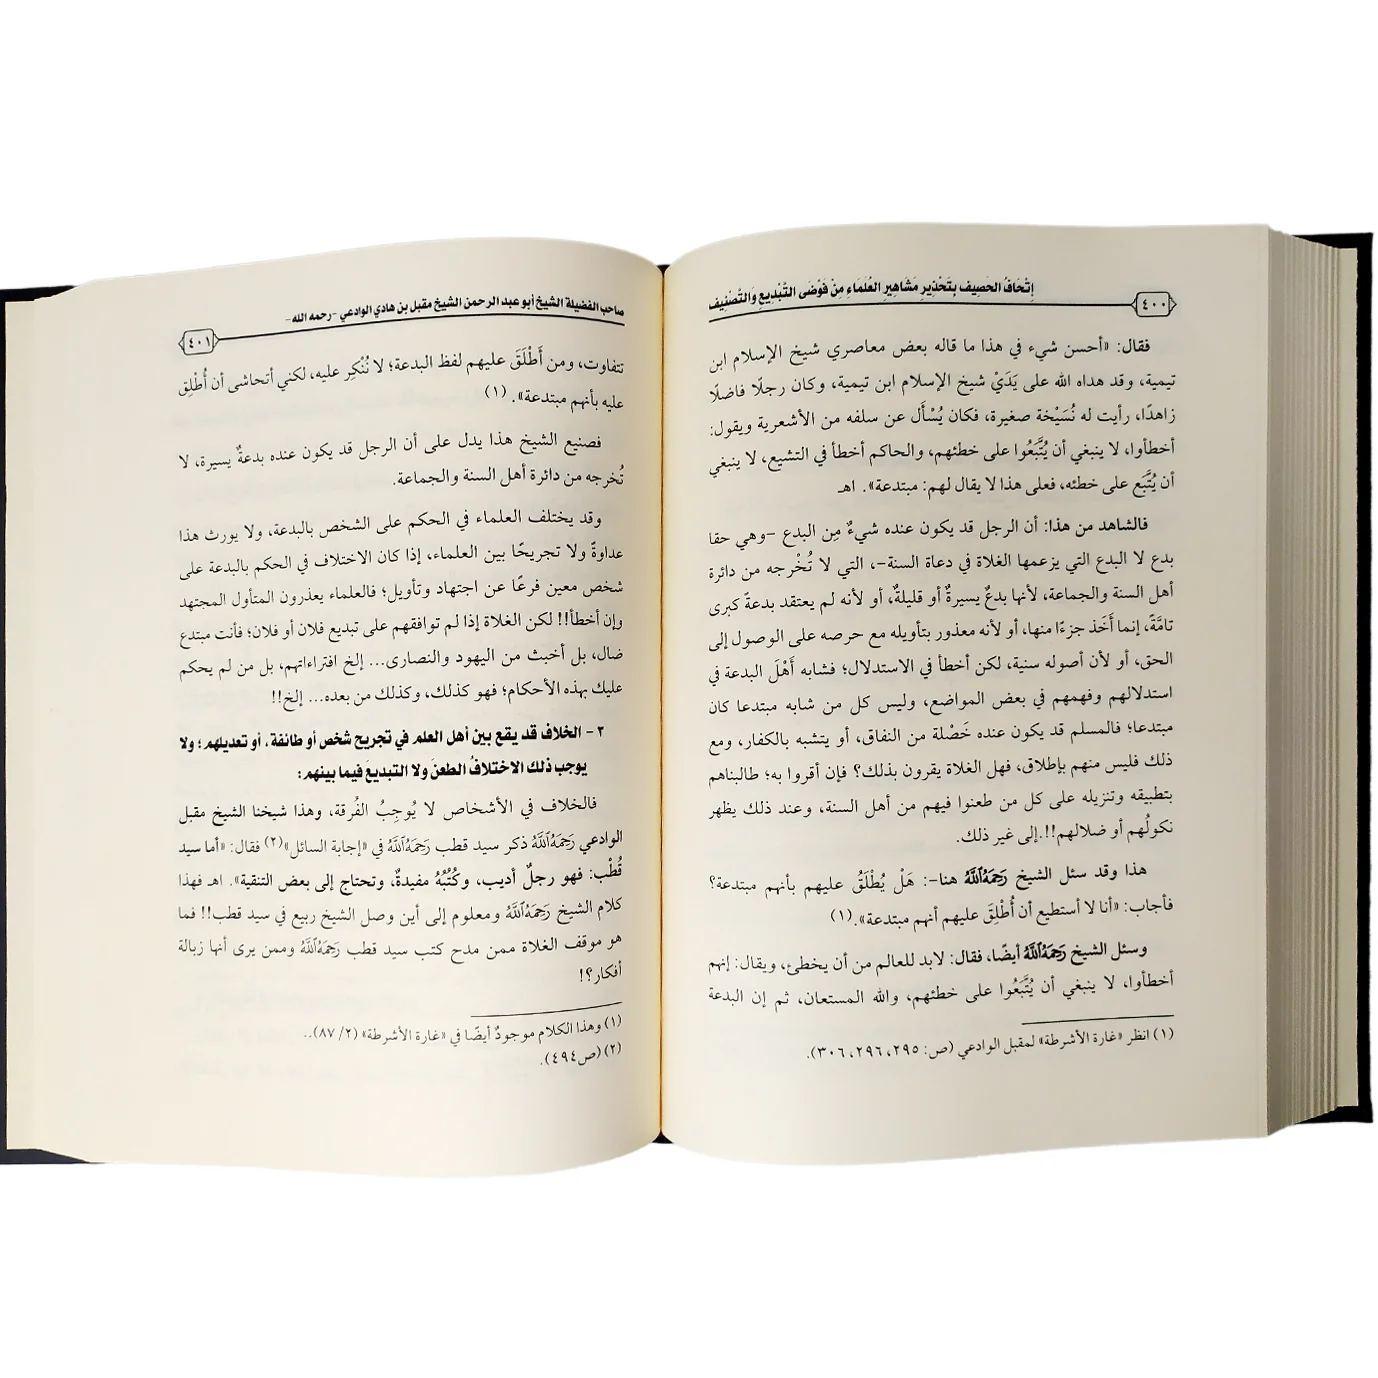 إتْحَافُ الحَصِيف بِتَحْذِيرِ مَشَاهِيرِ العُلَمَاءِ مِنْ فَوْضَى التَّبْدِيعِ وَالتَّصْنِيف
٤٠٠
فقال: «أحسن شيء في هذا ما قاله بعض معاصري شيخ الإسلام ابن
تيمية، وقد هداه الله على يَدَيْ شيخ الإسلام ابن تيمية، وكان رجلًا فاضلًا
زاهدًا، رأيت له نُسَيْخة صغيرة، فكان يُسْأَل عن سلفه من الأشعرية ويقول:
أخطأوا، لا ينبغي أن يُتَّبَعُوا على خطئهم، والحاكم أخطأ في التشيع، لا ينبغي
أن يُتَّبع على خطئه، فعلى هذا لا يقال لهم: مبتدعة». اهـ
فالشاهد من هذا: أن الرجل قد يكون عنده شيءٌ مِن البدع -وهي حقا
بدع لا البدع التي يزعمها الغلاة في دعاة السنة-، التي لا تُخْرجه من دائرة
أهل السنة والجماعة، لأنها بدعٌ يسيرةٌ أو قليلةٌ، أو لأنه لم يعتقد بدعةً كبرى
تامَّةً، إنما أَخَذ جزءًا منها، أو لأنه معذور بتأويله مع حرصه على الوصول إلى
الحق، أو لأن أصوله سنية، لكن أخطأ في الاستدلال؛ فشابه أَهْلَ البدعة في
استدلالهم وفهمهم في بعض المواضع، وليس كل من شابه مبتدعا كان
مبتدعا؛ فالمسلم قد يكون عنده خَصْلة من النفاق، أو يتشبه بالكفار، ومع
ذلك فليس منهم بإطلاق، فهل الغلاة يقرون بذلك؟ فإن أقروا به؛ طالبناهم
بتطبيقه وتنزيله على كل من طعنوا فيهم من أهل السنة، وعند ذلك يظهر
نكولُهم أو ضلالهم!!.إلى غير ذلك.
هذا وقد سئل الشيخ رَحِمَهُ ٱللَّهُ هنا-: هَلْ يُطْلَقُ عليهم بأنهم مبتدعة؟
فأجاب: «أنا لا أستطيع أن أُطْلِقَ عليهم أنهم مبتدعة».(١)
وسئل الشيخ رَحِمَهُ ٱللَّهُ أيضًا، فقال: لابد للعالم من أن يخطئ، ويقال: إنهم
أخطأوا، لا ينبغي أن يُتَّبَعُوا على خطئهم، والله المستعان، ثم إن البدعة
(١) انظر «غارة الأشرطة» لمقبل الوادعي (ص: ٢٩٥، ٢٩٦، ٣٠٦).
صاحب الفضيلة الشيخ أبو عبد الرحمن الشيخ مقبل بن هادي الوادعي -رحمه الله-
٤٠١
تتفاوت، ومن أَطْلَقَ عليهم لفظ البدعة؛ لا نُنْكِر عليه، لكني أتحاشى أن أُطْلِق
عليه بأنهم مبتدعة». (١)
فصنيع الشيخ هذا يدل على أن الرجل قد يكون عنده بدعةٌ يسيرة، لا
تُخرجه من دائرة أهل السنة والجماعة.
وقد يختلف العلماء في الحكم على الشخص بالبدعة، ولا يورث هذا
عداوةً ولا تجريحًا بين العلماء، إذا كان الاختلاف في الحكم بالبدعة على
شخص معين فرعًا عن اجتهاد وتأويل؛ فالعلماء يعذرون المتأول المجتهد
وإن أخطأ!! لكن الغلاة إذا لم توافقهم على تبديع فلان أو فلان؛ فأنت مبتدع
ضال، بل أخبث من اليهود والنصارى... إلخ افتراءاتهم، بل من لم يحكم
عليك بهذه الأحكام؛ فهو كذلك، وكذلك من بعده... إلخ!!
٢- الخلاف قد يقع بين أهل العلم في تجريح شخص أو طائفة، أو تعديلهم؛ ولا
يوجب ذلك الاختلافُ الطعنَ ولا التبديعَ فيما بينهم:
فالخلاف في الأشخاص لا يُوجِبُ الفُرقة، وهذا شيخنا الشيخ مقبل
الوادعي رَحِمَهُ ٱللَّهُ ذكر سيد قطب رَحِمَهُ ٱللَّهُ في «إجابة السائل»(٢) فقال: «أما سيد
قُطْب: فهو رجلٌ أديب، وكُتُبُهُ مفيدةٌ، وتحتاج إلى بعض التنقية». اهـ فهذا
كلام الشيخ رَحِمَهُ ٱللَّهُ ومعلوم إلى أين وصل الشيخ ربيع في سيد قطب!! فما
هو موقف الغلاة ممن مدح كتب سيد قطب رَحِمَهُ ٱللَّهُ وممن يرى أنها زبالة
أفكار؟!
(١) وهذا الكلام موجودٌ أيضًا في «غارة الأشرطة» (٢/ ٨٧)..
(٢) (ص٤٩٤).